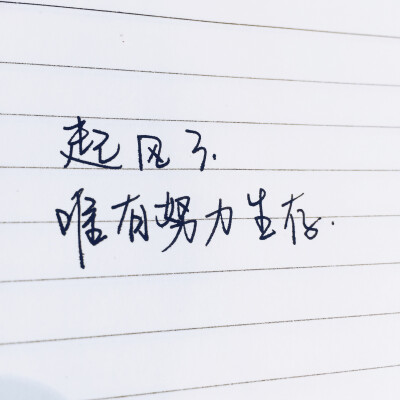 起风了.
唯有努力生存.